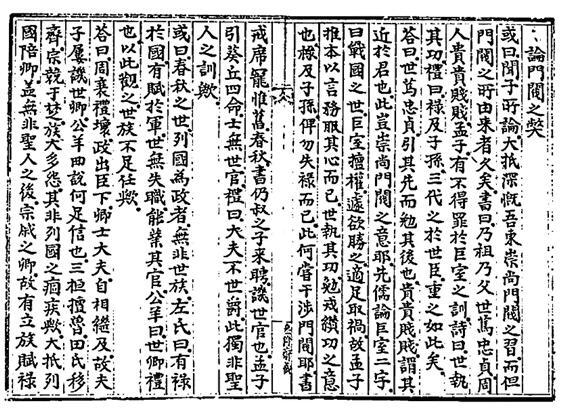 論門閥之獘
或曰聞子所論大抵深慨吾東崇尚門閥之習而但
門閥之所由來者久矣書曰乃祖乃父世篤忠貞周
人貴貴賤賤孟子有不得罪於巨室之訓詩曰世執
其功禮曰祿及子孫三代之於世臣重之如此矣
答曰世篤忠貞引其先而勉其後也貴貴賤賤謂其
近於君也此豈崇尚門閥之意耶先儒論巨室二字
曰戰國之世巨室擅權遽欲勝之適足取禍故孟子
推本以言務服其心而已世執其功勉戒纘功之意
也祿及子孫俾勿失祿而已此何嘗干涉門閥耶書
戒席寵惟舊春秋書仍叔之子來聘譏世官也孟子
引葵丘四命士無世官禮曰大夫不世爵此獨非聖
人之訓歟
或曰春秋之世列國爲政者無非世族左氏曰有祿
於國有賦於軍世無失職能榮其官公羊曰世卿禮
也以此觀之世族不足任歟
答曰周衰禮壞政出臣下卿士大夫自相繼及故夫
子屢譏世卿公羊曲說何足信也三桓擅魯田氏移
齊宗競于楚族大多怨其非列國之痼疾歟大抵列
國陪卿盖無非聖人之後宗戚之卿故有立族賦祿